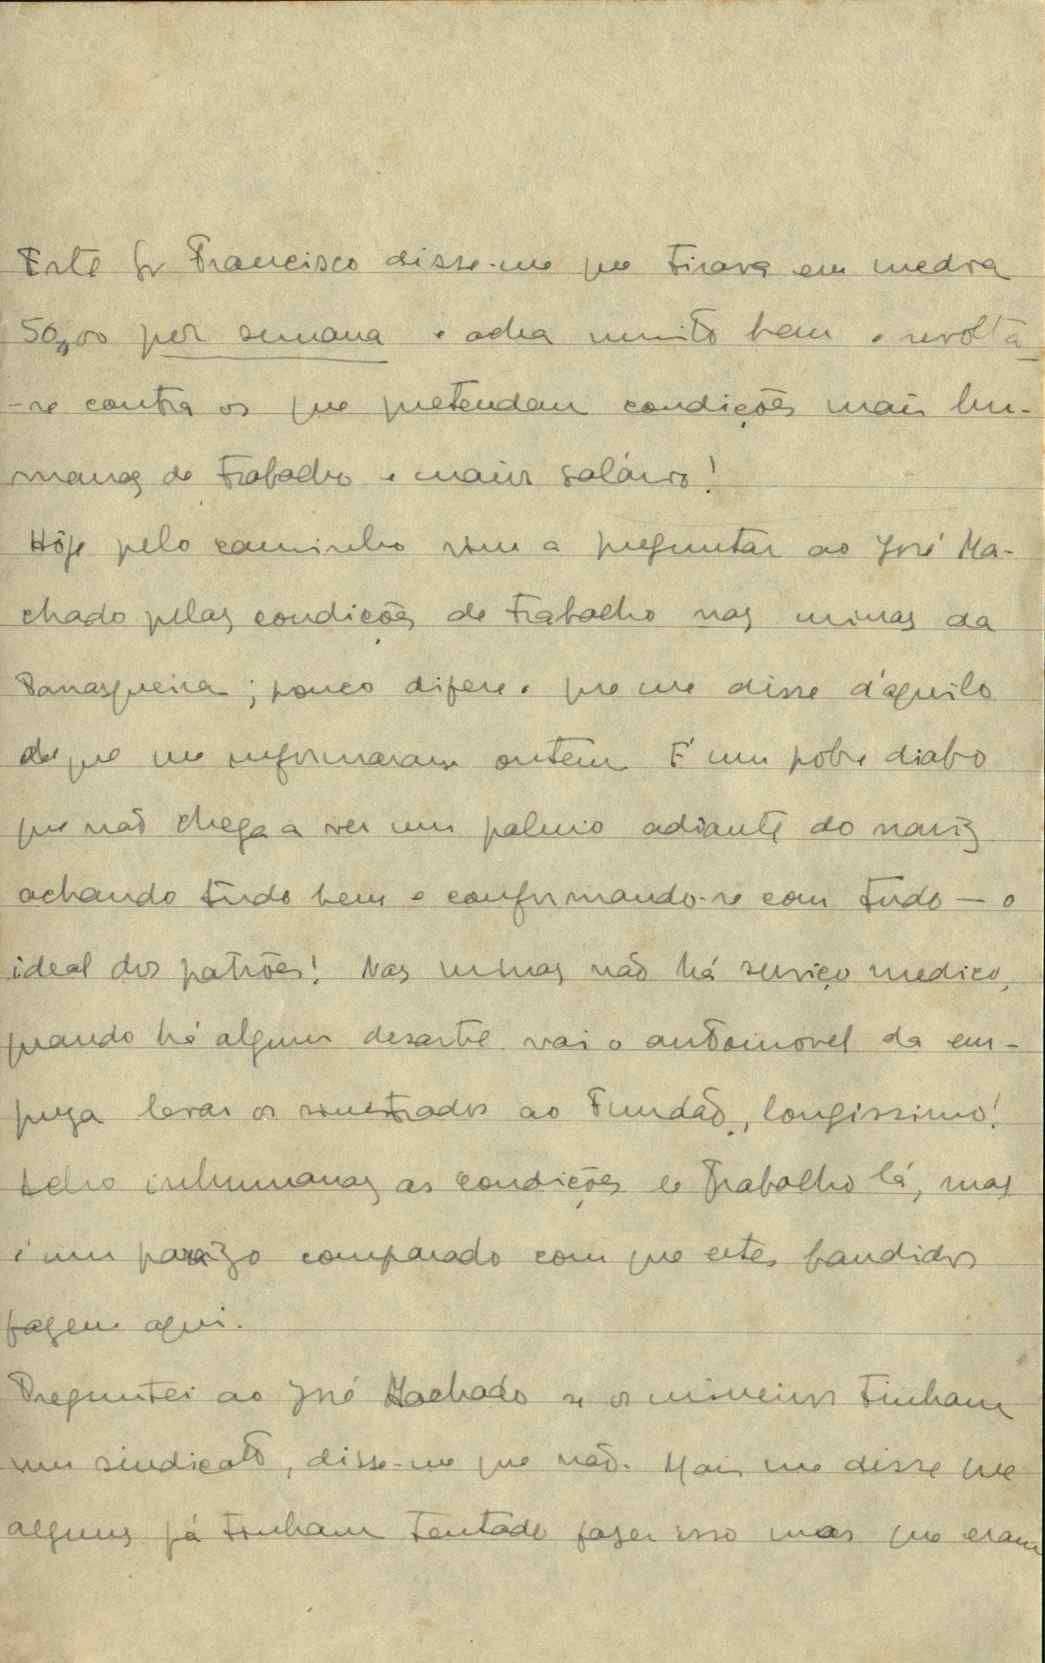 Este Sr Francisco disse-me que tirava em media
50,00 por semana e acha muito bem e revolta
-se contra os que pretendem condições mais hu-
manas de trabalho e maior salário!
Hôje pelo caminho vim a preguntar ao José Ma-
chado pelas condições de trabalho nas minas da
Panasqueira; pouco difere o que me disse d'aquilo
de que me informaram ontem. É um pobre diabo
que não chega a ver um palmo adiante do nariz
achando tudo bem e conformando-se com tudo — o
ideal dos patrões! Nas minas não há serviço medico,
quando há algum desastre vai o automovel da em-
preza levar os sinistrados ao Fundão, longissimo!
Acho inhumanas as condições de trabalho lá, mas
é um paraizo comparado com que estes bandidos
fazem aqui.
Preguntei ao José Machado se os mineiros tinham
um sindicato, disse-me que não. Mais me disse que
alguns já tinham tentado fazer isso mas que eram